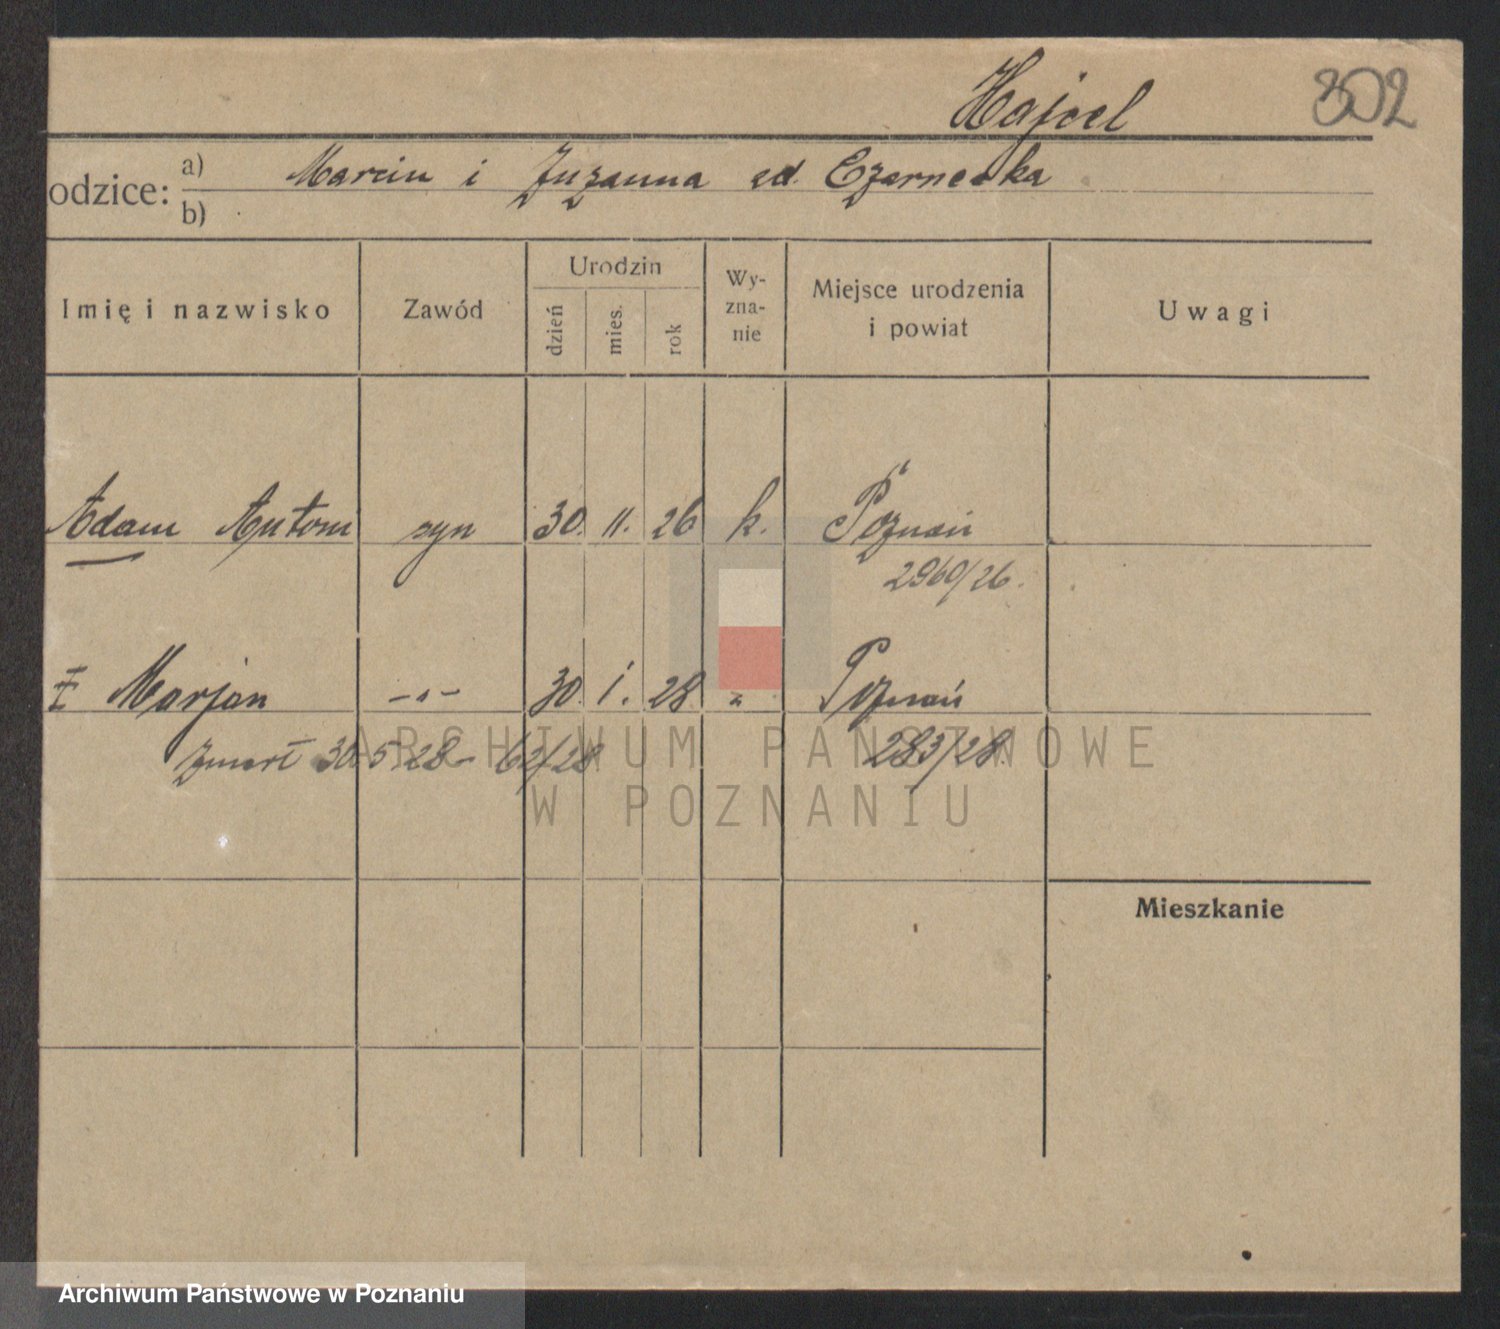 Hajcel 302
odzice: a) Marcin i Zuzanna zd. Czarnecka
b)
Imię i nazwisko Zawód Urodzin dzień mies. rok Wy-zna-nie Miejsce urodzenia i powiat Uwagi
Adam Antoni syn 30. 11. 26 k. Poznań
2960/26.
Marjan -"- 30. 1. 28 " Poznań
Zmarł 30.5.28 - 62/28 283/28.
ARCHIWUM PAŃSTWOWE
W POZNANIU
Mieszkanie
Archiwum Państwowe w Poznaniu